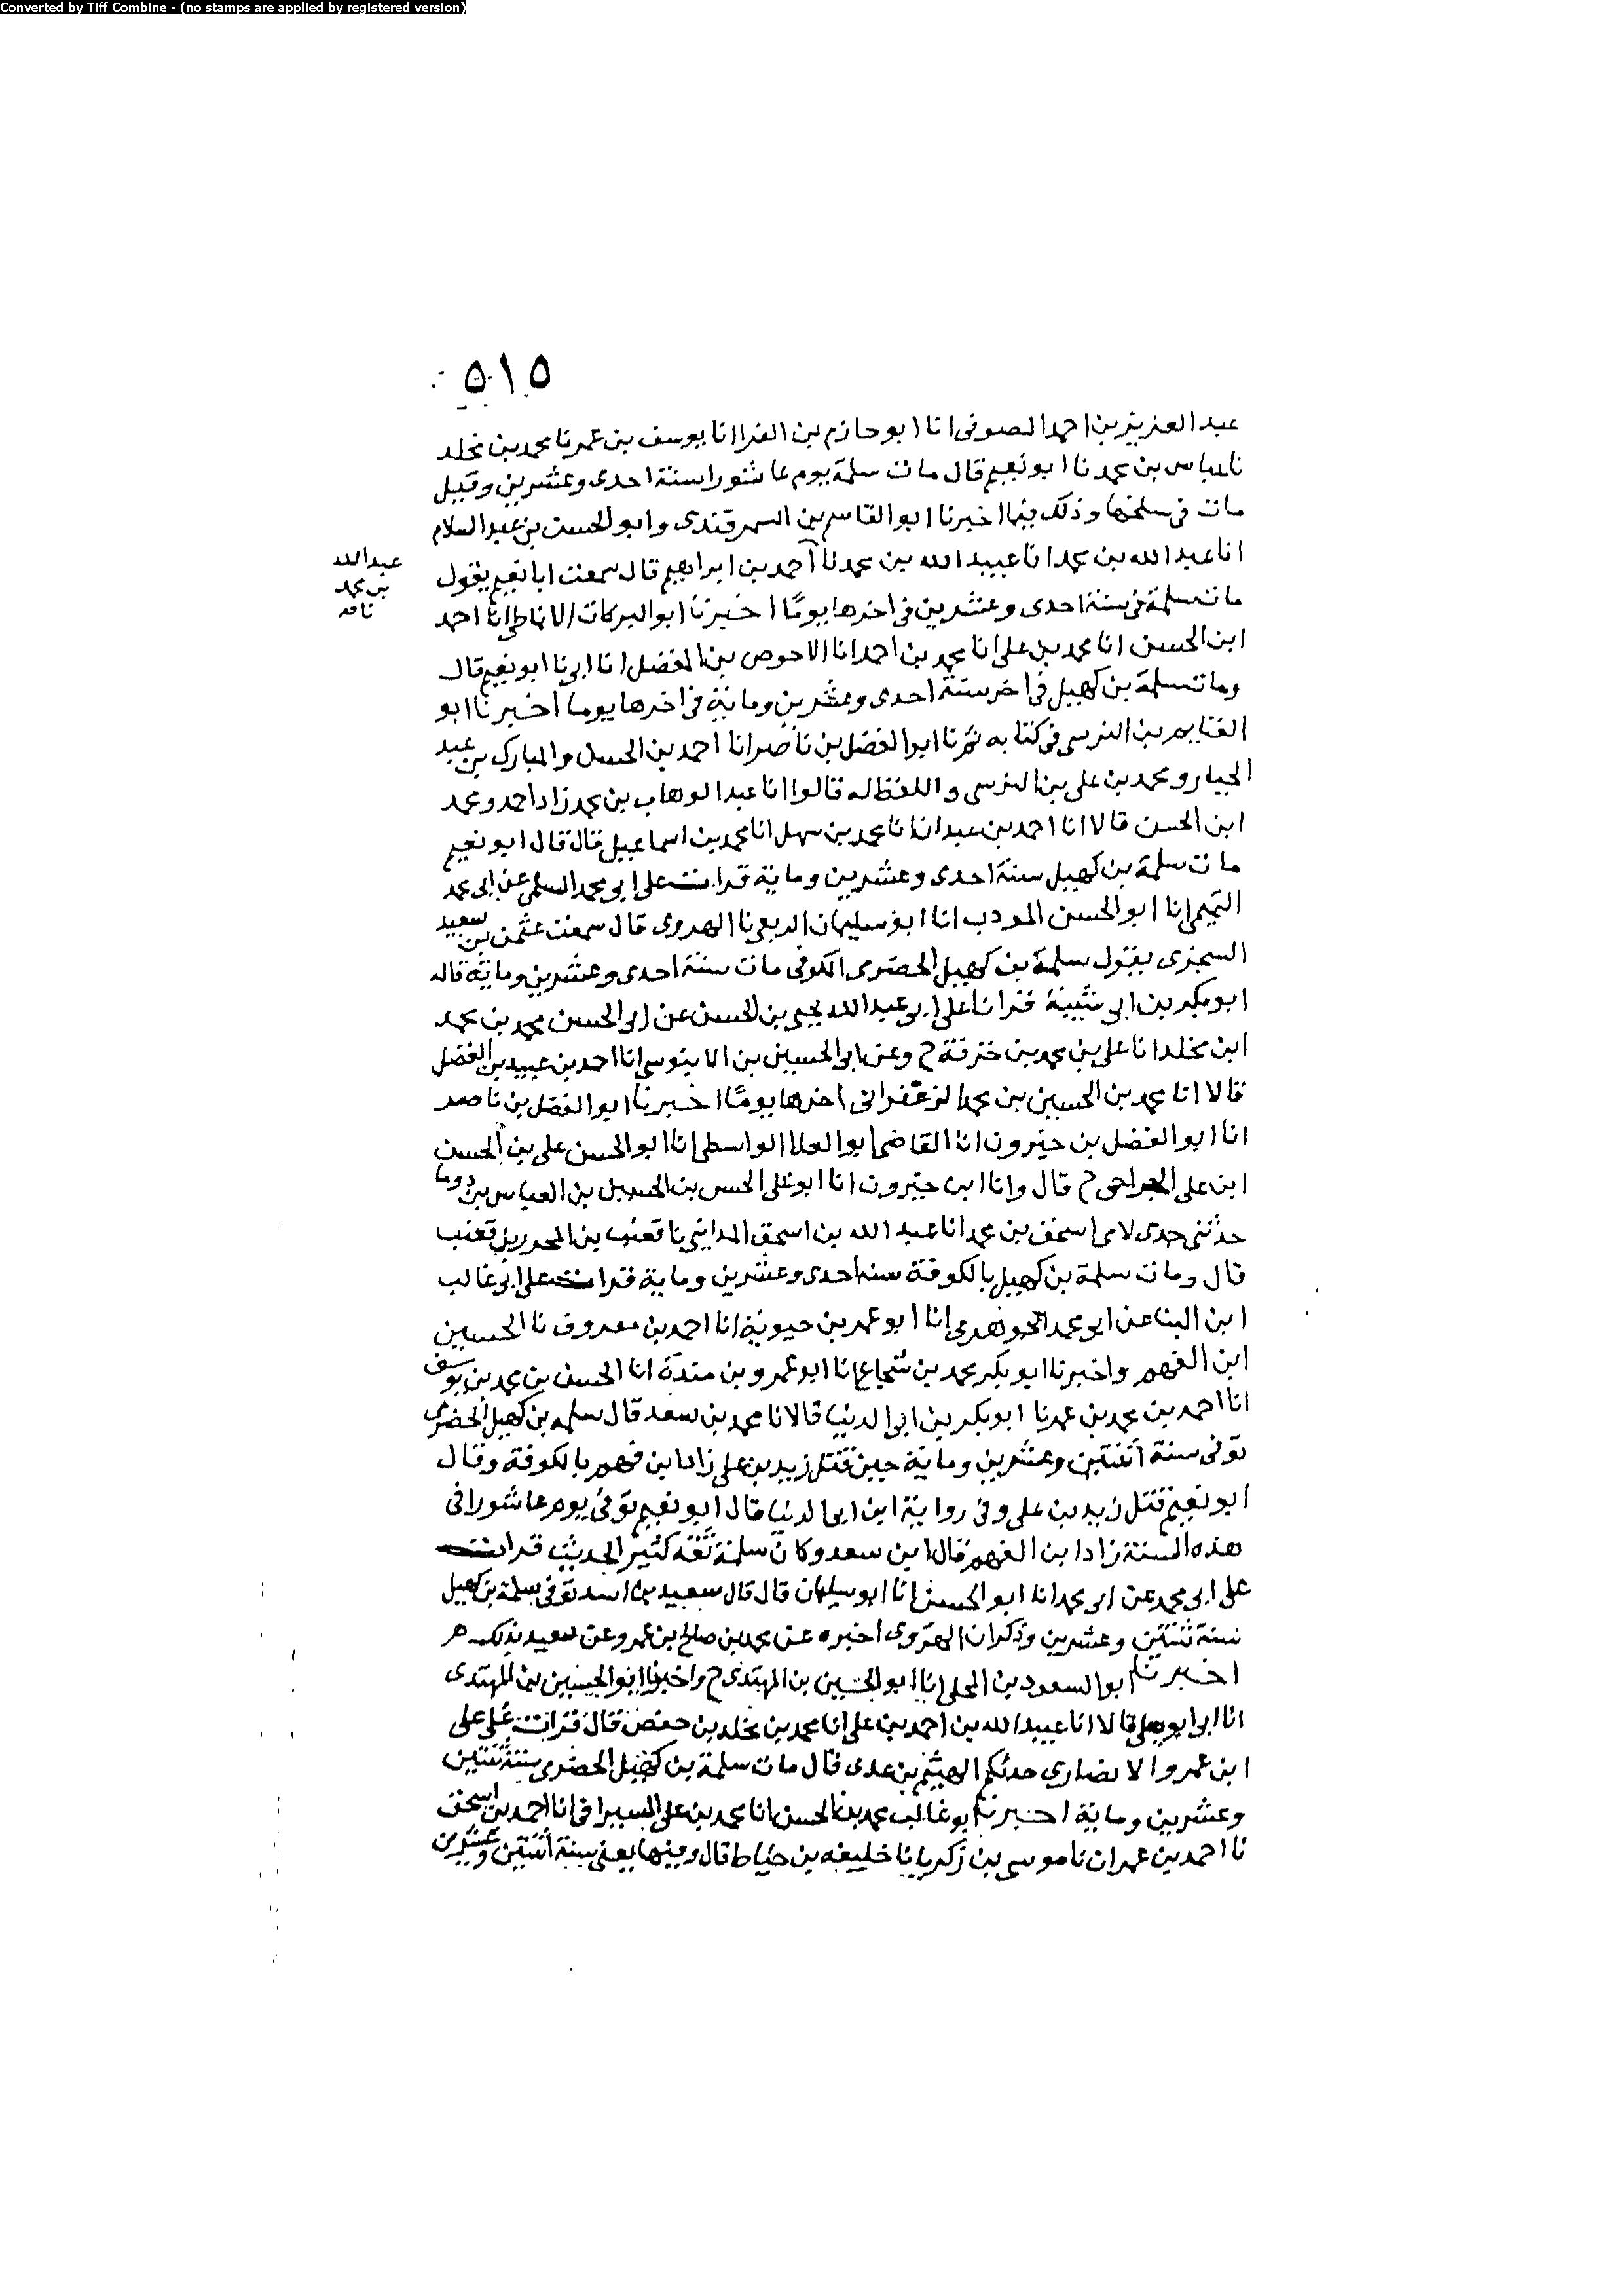 Converted by Tiff Combine - (no stamps are applied by registered version)
٥١٥
عبد العزيز بن احمد الصوفى انا ابو حازم بن الفرا انا يوسف بن عمر نا محمد بن مخلد
نا عباس بن محمد نا ابو نعيم قال مات سلمة يوم عاشورا سنة احدى وعشرين وقيل
مات فى سلخها وذلك فيما اخبرنا ابو القاسم بن السمرقندى وابو الحسن بن عبد السلام
انا عبد الله بن محمد انا عبيد الله بن محمد نا احمد بن ابراهيم قال سمعت ابا نعيم يقول
عبد الله
بن محمد
مات سلمة فى سنة احدى وعشرين فى اخرها يومًا اخبرنا ابو البركات الانماطى انا احمد
ابن الحسن انا محمد بن على انا محمد بن احمد انا الاحوص بن المفضل انا ابى نا ابو نعيم قال
ومات سلمة بن كهيل فى اخر سنة احدى وعشرين وماية فى اخرها يوما اخبرنا ابو
الغنايم بن النرسى فى كتابه ثم نا ابو الفضل بن ناصر انا احمد بن الحسن والمبارك بن عبد
الجبار ومحمد بن على بن النرسى واللفظ له قالوا انا عبد الوهاب بن محمد زاد احمد ومحمد
ابن الحسن قالا انا احمد بن عبدان انا محمد بن سهل انا محمد بن اسماعيل قال قال ابو نعيم
مات سلمة بن كهيل سنة احدى وعشرين وماية قرات على ابى محمد السلمى عن ابى محمد
التميمى انا ابو الحسن المودب انا ابو سليمان الربعى نا الهروى قال سمعت عثمن بن سعيد
السجزى يقول سلمة بن كهيل الحضرمى الكوفى مات سنة احدى وعشرين وماية قاله
ابو بكر بن ابى شيبة قرانا على ابى عبد الله يحيى بن الحسن عن ابى الحسن محمد بن محمد
ابن مخلد انا على بن محمد بن خزفة ح وعن ابى الحسين بن الابنوسى انا احمد بن عبيد بن الفضل
قالا انا محمد بن الحسين بن محمد الزعفرانى اخرها يومًا اخبرنا ابو الفضل بن ناصر
انا ابو الفضل بن خيرون انا القاضى ابو العلا الواسطى انا ابو الحسن على بن الحسن
ابن على الجراحى ح قال وانا ابن خيرون انا ابو على الحسن بن الحسين بن العباس بن دوما
حدثنى جدى لامى اسحق بن محمد انا عبد الله بن اسحق المداينى نا قعنب بن المحرر بن قعنب
قال ومات سلمة بن كهيل بالكوفة سنه احدى وعشرين وماية قرات على ابى غالب
ابن البنا عن ابى محمد الجوهرى انا ابو عمر بن حيوية انا احمد بن معروف نا الحسين
ابن الفهم واخبرنا ابو بكر محمد بن شجاع انا ابو عمرو بن مندة انا الحسن بن محمد بن يوسف
انا احمد بن محمد بن عمر نا ابو بكر بن ابى الدنيا قالا نا محمد بن سعد قال سلمه بن كهيل الحضرمى
توفى سنة اثنتين وعشرين وماية حين قتل زيد بن على زاد ابن فهم بالكوفة وقال
ابو نعيم قتل زيد بن على وفى رواية ابن ابى الدنيا قال ابو نعيم توفى يوم عاشورا فى
هذه السنة زاد ابن الفهم قال ابن سعد وكان سلمة ثقه كثير الحديث قرات
على ابى محمد عن ابى محمد انا ابو الحسن انا ابو سليمان قال قال سعيد بن اسد توفى سلمة بن كهيل
سنة ثنتين وعشرين وذكر ان الهروى اخبره عن محمد بن صالح بن عمرو عن سعيد بذلك
اخبرنا ابو السعود بن المجلى انا ابو الحسين بن المهتدى ح واخبرنا ابو الحسين بن المهتدى
انا ابى ابو يعلى قالا انا عبيد الله بن احمد بن على انا محمد بن مخلد بن حفص قال قرات على على
ابن عمرو الانصاري حدثكم الهيثم بن عدى قال مات سلمة بن كهيل الحضرمى سنة ثنتين
وعشرين وماية اخبرنا ابو غالب محمد بن الحسن انا محمد بن على السيرافى انا احمد بن اسحق
نا احمد بن عمران نا موسى بن زكريا نا خليفه بن خياط قال وفيها يعنى سنة اثنتين وعشرين